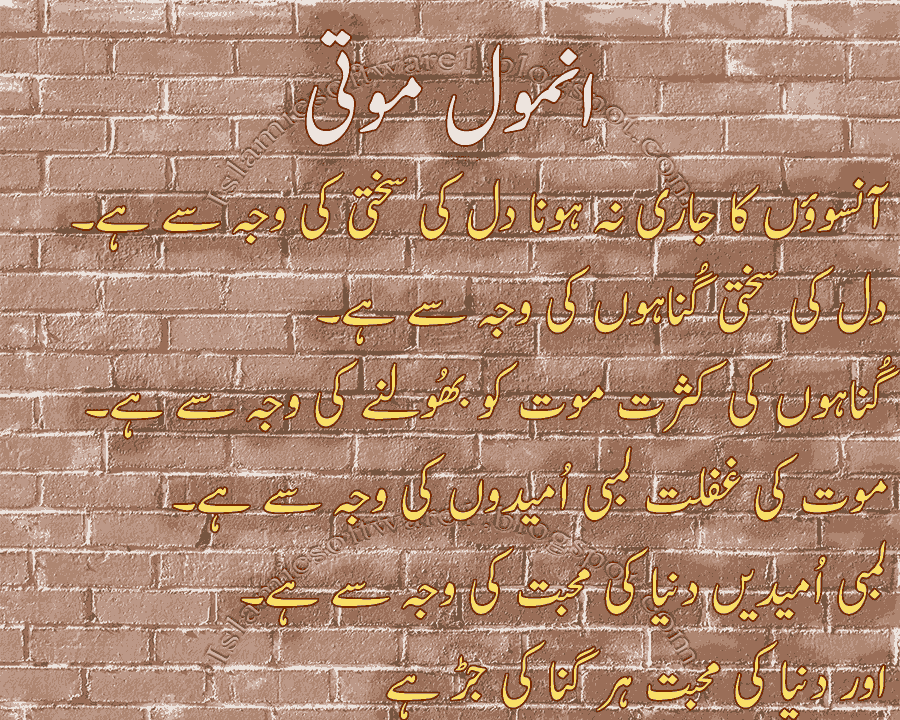 انمول موتی
آنسوؤں کا جاری نہ ہونا دل کی سختی کی وجہ سے ہے۔
دل کی سختی گُناہوں کی وجہ سے ہے۔
گُناہوں کی کثرت موت کو بھُولنے کی وجہ سے ہے۔
موت کی غفلت لمبی اُمیدوں کی وجہ سے ہے۔
لمبی اُمیدیں دنیا کی محبت کی وجہ سے ہے۔
اور دنیا کی محبت ہر گنا کی جڑ ہے
Islamicsoftware1.blogspot.com
Islamicsoftware1.blogspot.com